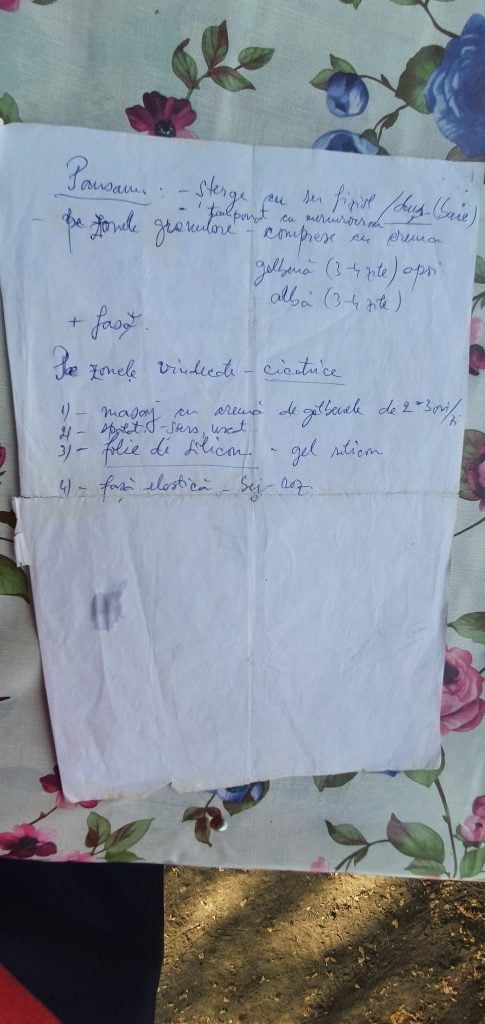 Pansam : - șterge cu ser fiziol / duș (baie)
- tamponat cu mercurocrom
- pe zonele granulare - comprese cu crema
galbenă (3-4 zile) apoi
albă (3-4 zile)
+ fașă.
Pe zonele vindecate - cicatrice
1) - masaj cu cremă de gălbenele de 2-3 ori/zi
2) - spălat - șters, uscat
3) - folie de silicon - gel silicon
4) - fașă elastică - bej - roz.